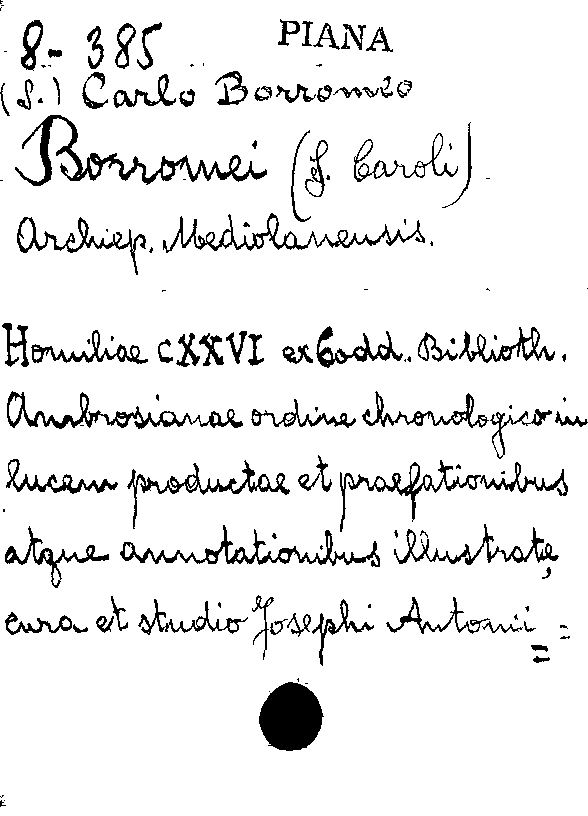 8-385 PIANA
(S.) Carlo Borromeo
Borromei (S. Caroli)
Archiep. Mediolanensis.
Homiliae CXXVI ex Codd. Biblioth.
Ambrosianae ordine chronologico in
lucem productae et praefationibus
atque annotationibus illustratę
cura et studio Josephi Antonii =